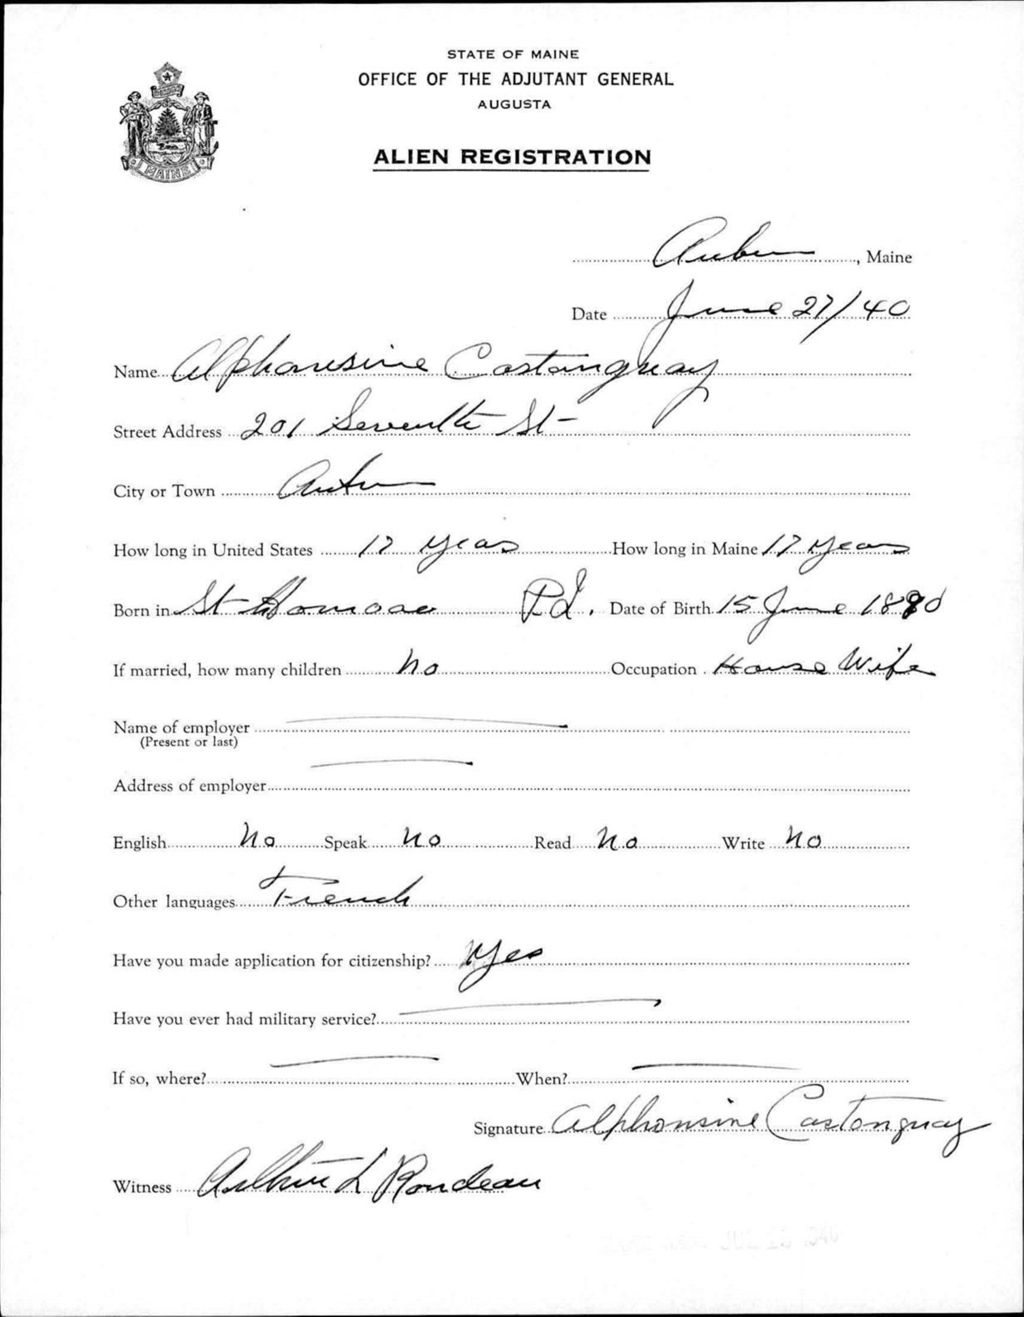 STATE OF MAINE
OFFICE OF THE ADJUTANT GENERAL
AUGUSTA
ALIEN REGISTRATION
MAINE
Auburn, Maine
Date June 27/40
Name Alphonsine Castonguay
Street Address 201 Seventh St-
City or Town Auburn
How long in United States 17 years How long in Maine 17 years
Born in St P.Q. Date of Birth 15 June 1890
If married, how many children No Occupation House Wife
Name of employer
(Present or last)
Address of employer
English No Speak No Read No Write No
Other languages French
Have you made application for citizenship? Yes
Have you ever had military service?
If so, where? When?
Signature Alphonsine Castonguay
Witness L Rondeau